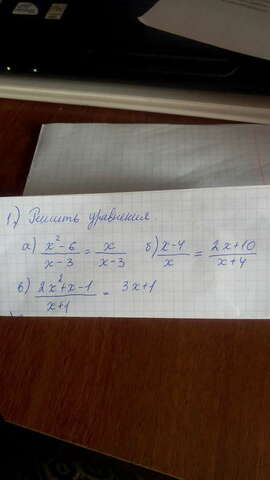 1,) Решить уравнения.
а) x²-6/x-3 = x/x-3 б) x-4/x = 2x+10/x+4
в) 2x²+x-1/x+1 = 3x+1